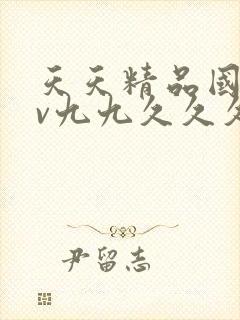 天天精品國
v九九久久久
尹留志